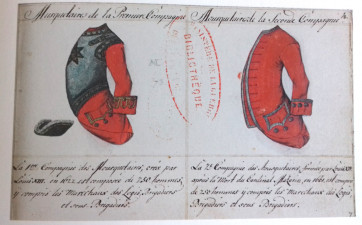 Mousquetaires de la Premiere Compagnie
Mousquetaires de la Seconde Compagnie
4.
MINISTERE DE LA GUERRE
BIBLIOTHÈQUE
La 1ere Compagnie des Mousquetaires, créée par
Louis XIII. en 1622. est composée de 250 hommes,
y compris les Maréchaux des Logis, Brigadiers
et sous Brigadiers.
La 2e Compagnie des Mousquetaires, formée par Louis XIV
après la Mort du Cardinal Mazarin, en 1661, est composée
de 250 hommes y compris les Maréchaux des Logis
Brigadiers et sous Brigadiers.